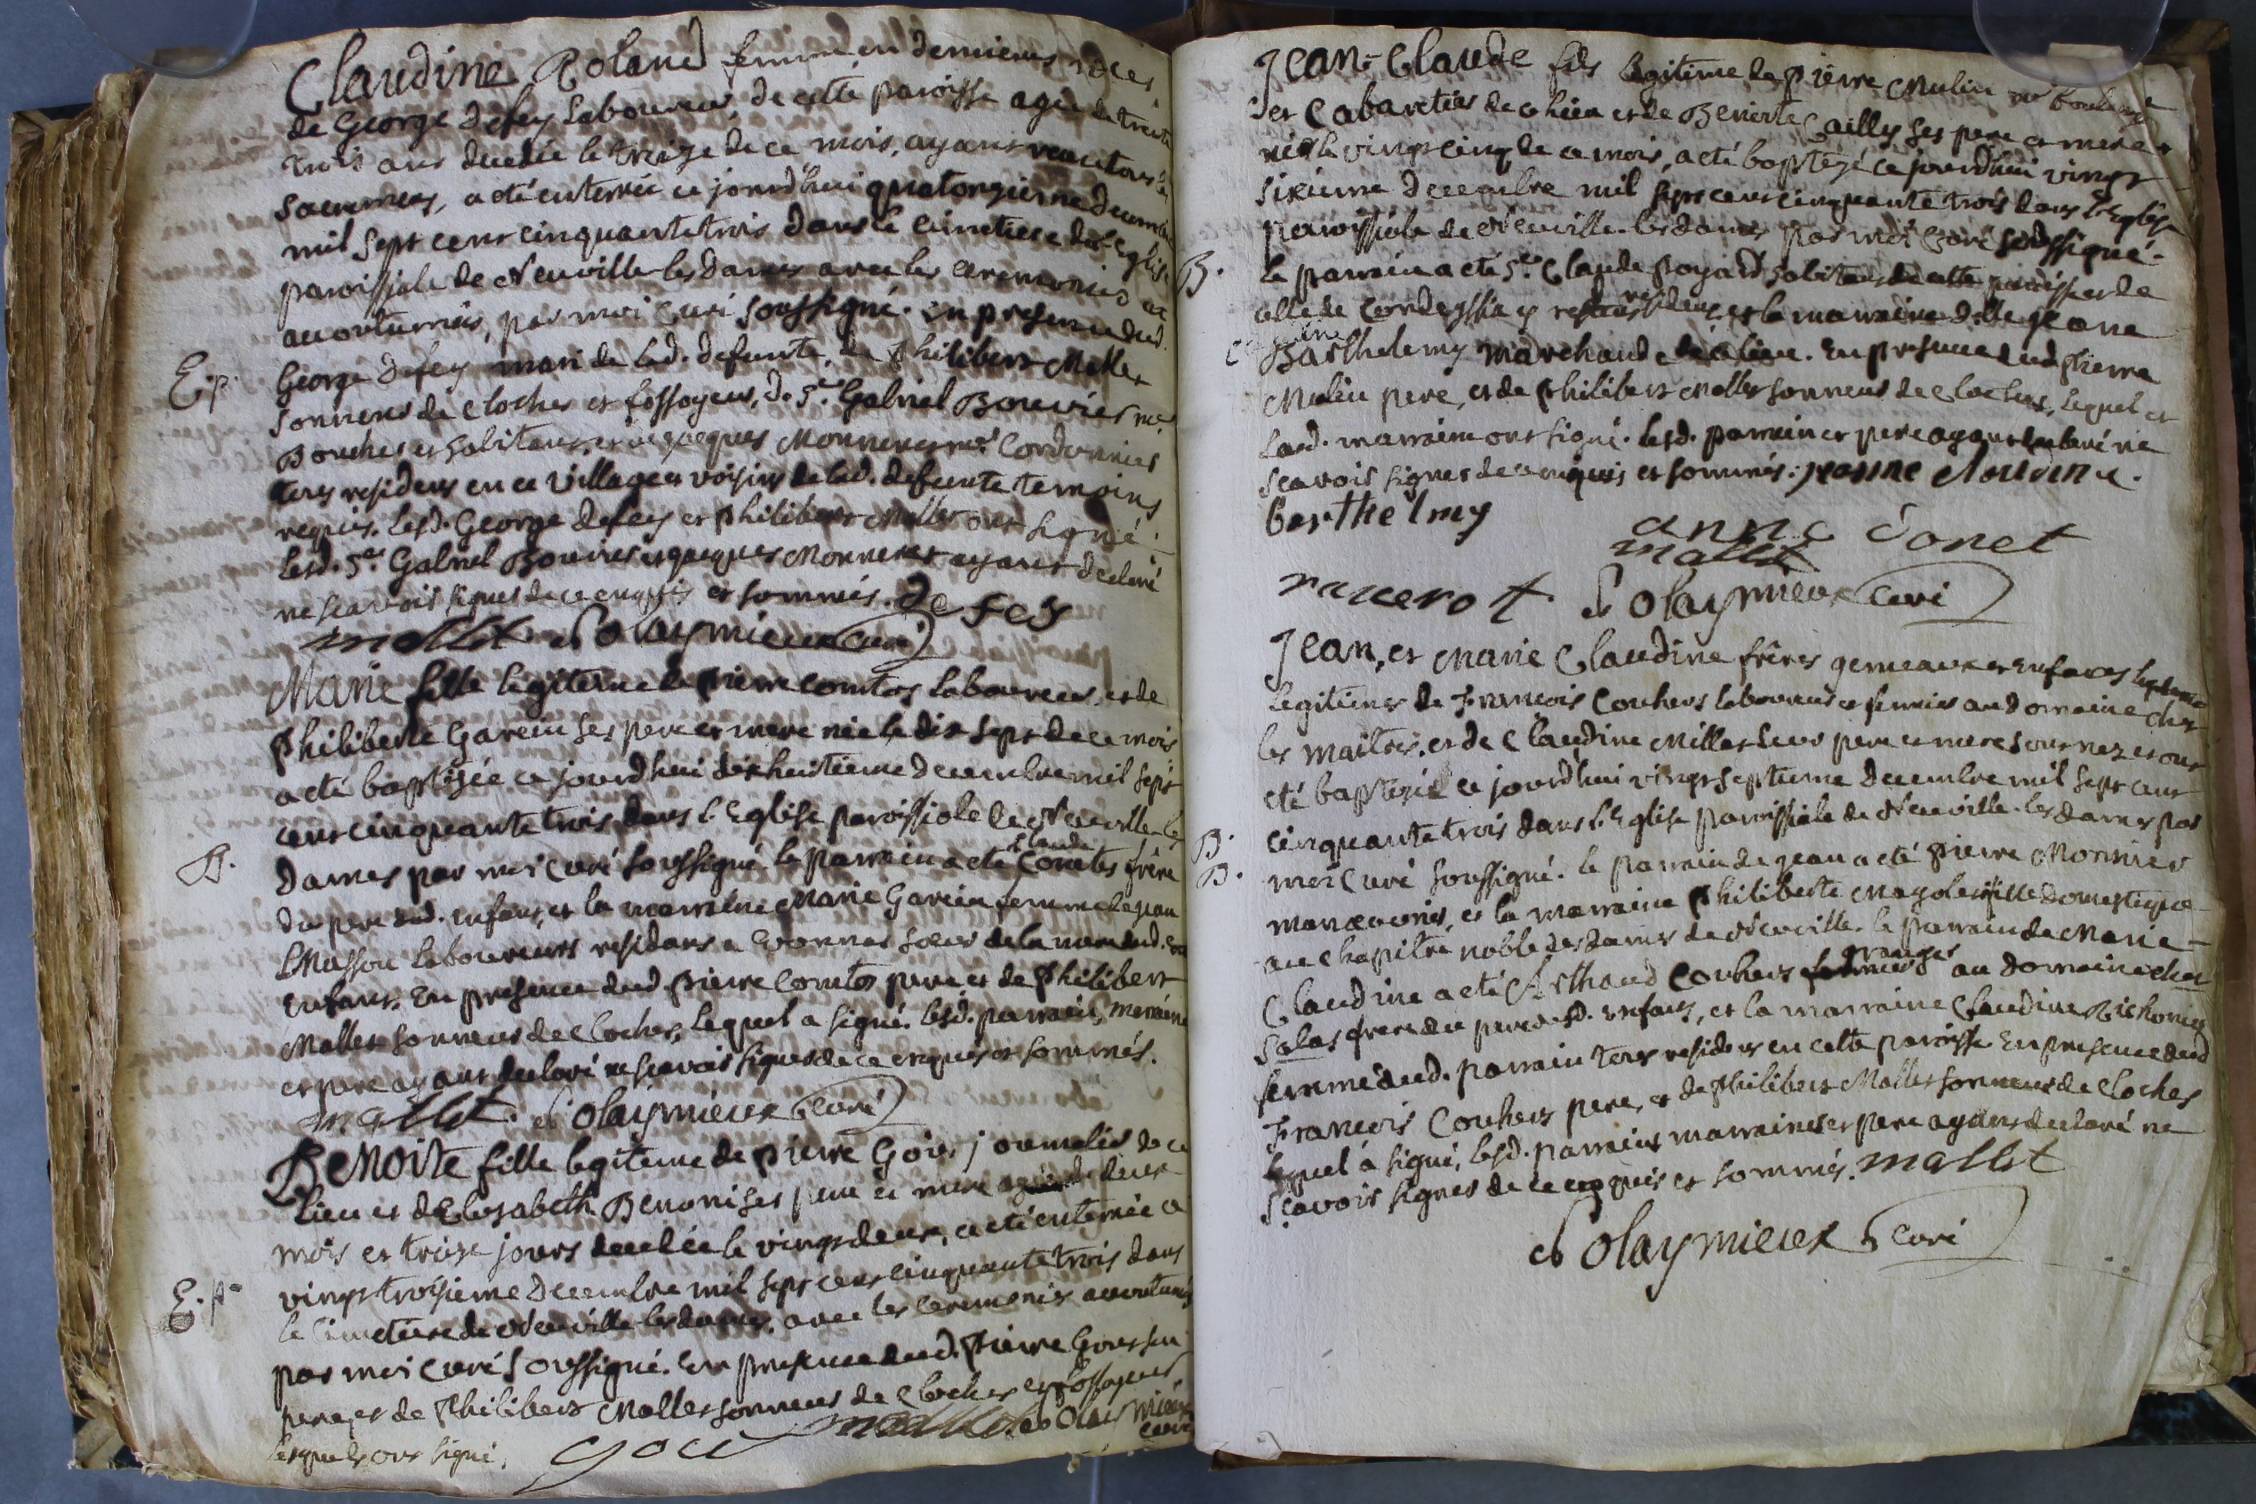 Claudine Roland femme en dernieres noces
de George Defey Laboureur, de cette paroisse agée de trente
trois ans decedée le treize de ce mois, ayant recu tous les
sacremens, a eté enterrée ce jourd'hui quatorzieme decembre
mil sept cent cinquante trois dans le cimetiere de l'Eglise
paroissiale de Neuville les Dames avec les ceremonies
accoutumées, par moi curé soussigné. en presence dud.
E.p. George Defey mari de lad. defunte, de Philibert Mallet
sonneur de cloches et fossoyeur, de Sr. Gabriel Bouvier me.
Boucher et habitant, et de Jacques Monneret me. Cordonnier
tous residens en ce village et voisins de lad. defunte temoins
requis. lesd. George Defey et Philibert Mallet ont signé.
lesd. Sr. Gabriel Bouvier et Jacques Monneret ayant declaré
ne scavoir signer de ce enquis et sommés. De Fey
mallet Polaymieux curé
Marie fille legitime de Pierre Comtos laboureur, et de
Philiberte Garein ses pere et mere née le dix sept de ce mois
a eté baptisée ce jourd'hui dixhuitieme decembre mil sept
cent cinquante trois dans l'Eglise paroissiale de Neuville les
B. Dames par moi curé soussigné le parrain a eté Claude Comtes frère
du pere dud. enfant, et la marraine Marie Garein femme de Jean
Masson laboureurs residans a Vonnas soeur de la mere dud.
enfant. En presence dud. Pierre Comtos pere, et de Philibert
Mallet sonneur de cloches, lequel a signé. lesd. parrain, marraine
et pere ayant declaré ne scavoir signer de ce enquis et sommés.
mallet. Polaymieux curé
Benoite fille legitime de Pierre Goix journalier de ce
lieu et d'Elisabeth Benoni ses pere et mere agée de deux
mois et treize jours decedée le vingt deux, a eté enterrée ce
vingt troisieme decembre mil sept cent cinquante trois dans
E.p. le cimetiere de Neuville les dames, avec les ceremonies accoutumées
par moi curé soussigné. En presence dud. Pierre Goix son
pere, et de Philibert Mallet sonneur de cloches et fossoyeur
lesquels ont signé. mallet Polaymieux
curé
Jean-Claude fils legitime de Pierre Mulin me boulanger
et Cabaretier de ce lieu et de Benoite Cailly ses pere et mere
né le vingt cinq de ce mois, a eté baptizé ce jourd'hui vingt
sixieme decembre mil sept cent cinquante trois dans l'Eglise
paroissiale de Neuville-les dames par moi Curé soussigné.
B. le parrain a eté Sr. Claude Poyard habitant de cette paroisse et de
celle de Condeyssia y residant et la marraine Dlle Jeanne
Barthelemy marchande de ce lieu. En presence dud. Pierre
Mulin pere, et de Philibert Mallet sonneur de cloches, lequel et
lad. marraine ont signé. lesd. parrain et pere ayant declaré ne
scavoir signer de ce enquis et sommés. jeanne Claudine
barthelmy
anne donet
mallet
racerot Polaymieux curé
Jean, et Marie Claudine frères gemeaux et enfans
legitimes de François Couhers laboureur et fermier au domaine chez
les maitres, et de Claudine Millet leur pere et mere sont nez et ont
eté baptizés ce jourd'hui vingt septieme decembre mil sept cent
B. cinquante trois dans l'Eglise paroissiale de Neuville-les dames par
B. moi Curé soussigné. le parrain de Jean a eté Pierre Monnier
manoeuvrier, et la marraine Philiberte fille domestique
au chapitre noble des dames de Neuville. le parrain de Marie-
Claudine a eté Arthaud Couhers granger au domaine chez
Salas frere du pere desd. enfans, et la marraine Claudine Bichonier
femme dud. parrain tous residens en cette paroisse. En presence dud
François Couhers pere, et de Philibert Mallet sonneur de cloches
lequel a signé, lesd. parrains marraines et pere ayans declaré ne
scavoir signer de ce enquis et sommés. mallet
Polaymieux curé